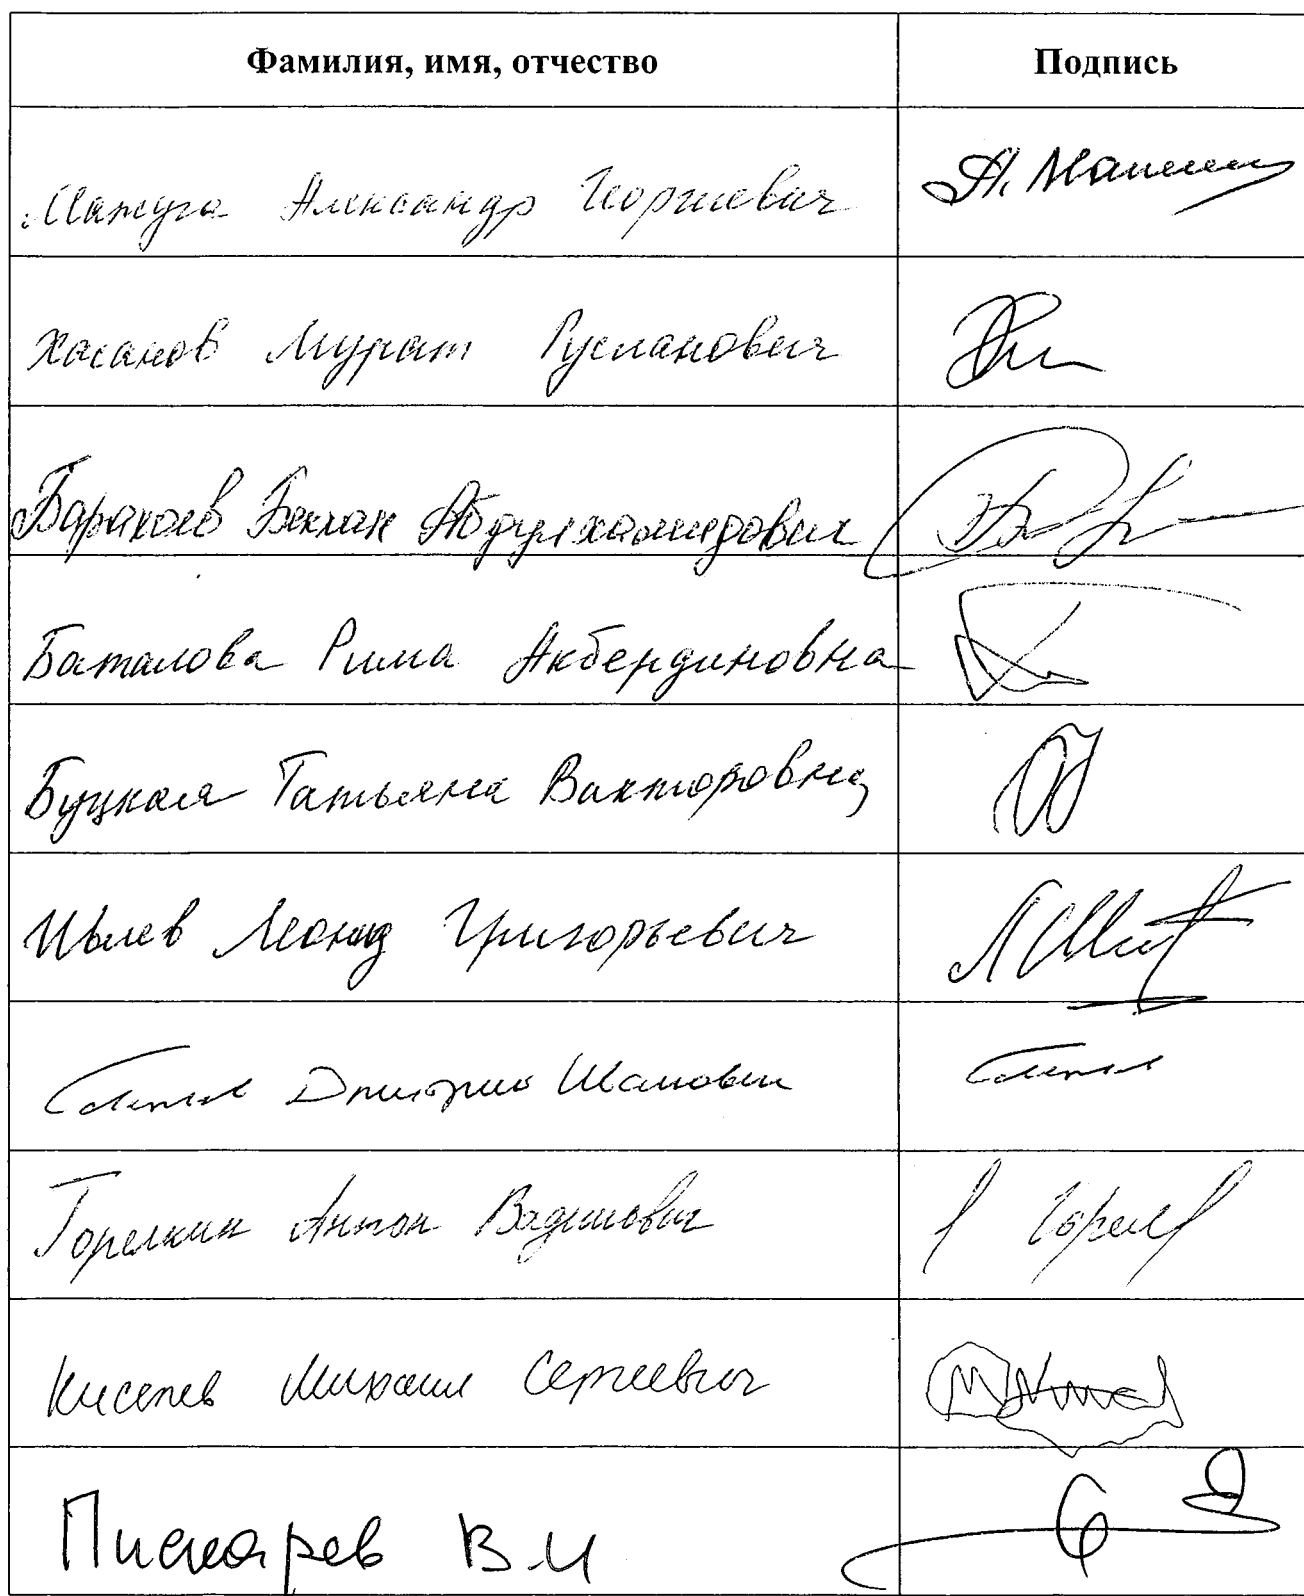 Фамилия, имя, отчество Подпись
Мажуга Александр Георгиевич А.
Хасанов Мурат Русланович
Баракаев Бекхан Абдулхамидович
Баталова Рима Акбердиновна
Буцкая Татьяна Викторовна
Ивлев Леонид Григорьевич
Дмитрий Шамович
Горелкин Антон Вадимович
Киселев Михаил Сергеевич
Пискарев В.И